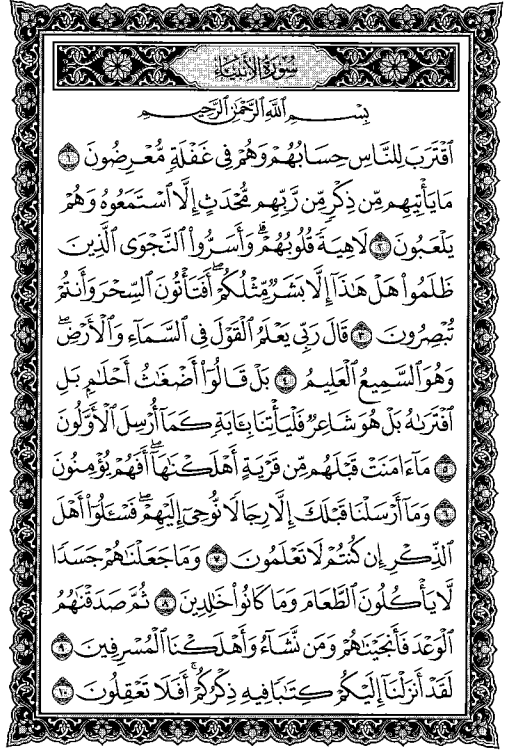 سُورَةُ الْأَنبِيَاءِ
بِسْمِ اللَّهِ الرَّحْمَٰنِ الرَّحِيمِ
ٱقْتَرَبَ لِلنَّاسِ حِسَابُهُمْ وَهُمْ فِي غَفْلَةٍ مُّعْرِضُونَ ١
مَا يَأْتِيهِم مِّن ذِكْرٍ مِّن رَّبِّهِم مُّحْدَثٍ إِلَّا ٱسْتَمَعُوهُ وَهُمْ
يَلْعَبُونَ ٢ لَاهِيَةً قُلُوبُهُمْ ۗ وَأَسَرُّوا۟ ٱلنَّجْوَى ٱلَّذِينَ
ظَلَمُوا۟ هَلْ هَـٰذَآ إِلَّا بَشَرٌ مِّثْلُكُمْ ۖ أَفَتَأْتُونَ ٱلسِّحْرَ وَأَنتُمْ
تُبْصِرُونَ ٣ قَالَ رَبِّي يَعْلَمُ ٱلْقَوْلَ فِي ٱلسَّمَآءِ وَٱلْأَرْضِ ۖ
وَهُوَ ٱلسَّمِيعُ ٱلْعَلِيمُ ٤ بَلْ قَالُوٓا۟ أَضْغَـٰثُ أَحْلَـٰمٍۭ بَلِ
ٱفْتَرَىٰهُ بَلْ هُوَ شَاعِرٌ فَلْيَأْتِنَا بِـَٔايَةٍ كَمَآ أُرْسِلَ ٱلْأَوَّلُونَ
٥ مَآ ءَامَنَتْ قَبْلَهُم مِّن قَرْيَةٍ أَهْلَكْنَـٰهَآ ۖ أَفَهُمْ يُؤْمِنُونَ
٦ وَمَآ أَرْسَلْنَا قَبْلَكَ إِلَّا رِجَالًا نُّوحِيٓ إِلَيْهِمْ ۖ فَسْـَٔلُوٓا۟ أَهْلَ
ٱلذِّكْرِ إِن كُنتُمْ لَا تَعْلَمُونَ ٧ وَمَا جَعَلْنَـٰهُمْ جَسَدًا
لَّا يَأْكُلُونَ ٱلطَّعَامَ وَمَا كَانُوا۟ خَـٰلِدِينَ ٨ ثُمَّ صَدَقْنَـٰهُمُ
ٱلْوَعْدَ فَأَنجَيْنَـٰهُمْ وَمَن نَّشَآءُ وَأَهْلَكْنَا ٱلْمُسْرِفِينَ ٩
لَقَدْ أَنزَلْنَآ إِلَيْكُمْ كِتَـٰبًا فِيهِ ذِكْرُكُمْ ۖ أَفَلَا تَعْقِلُونَ ١٠